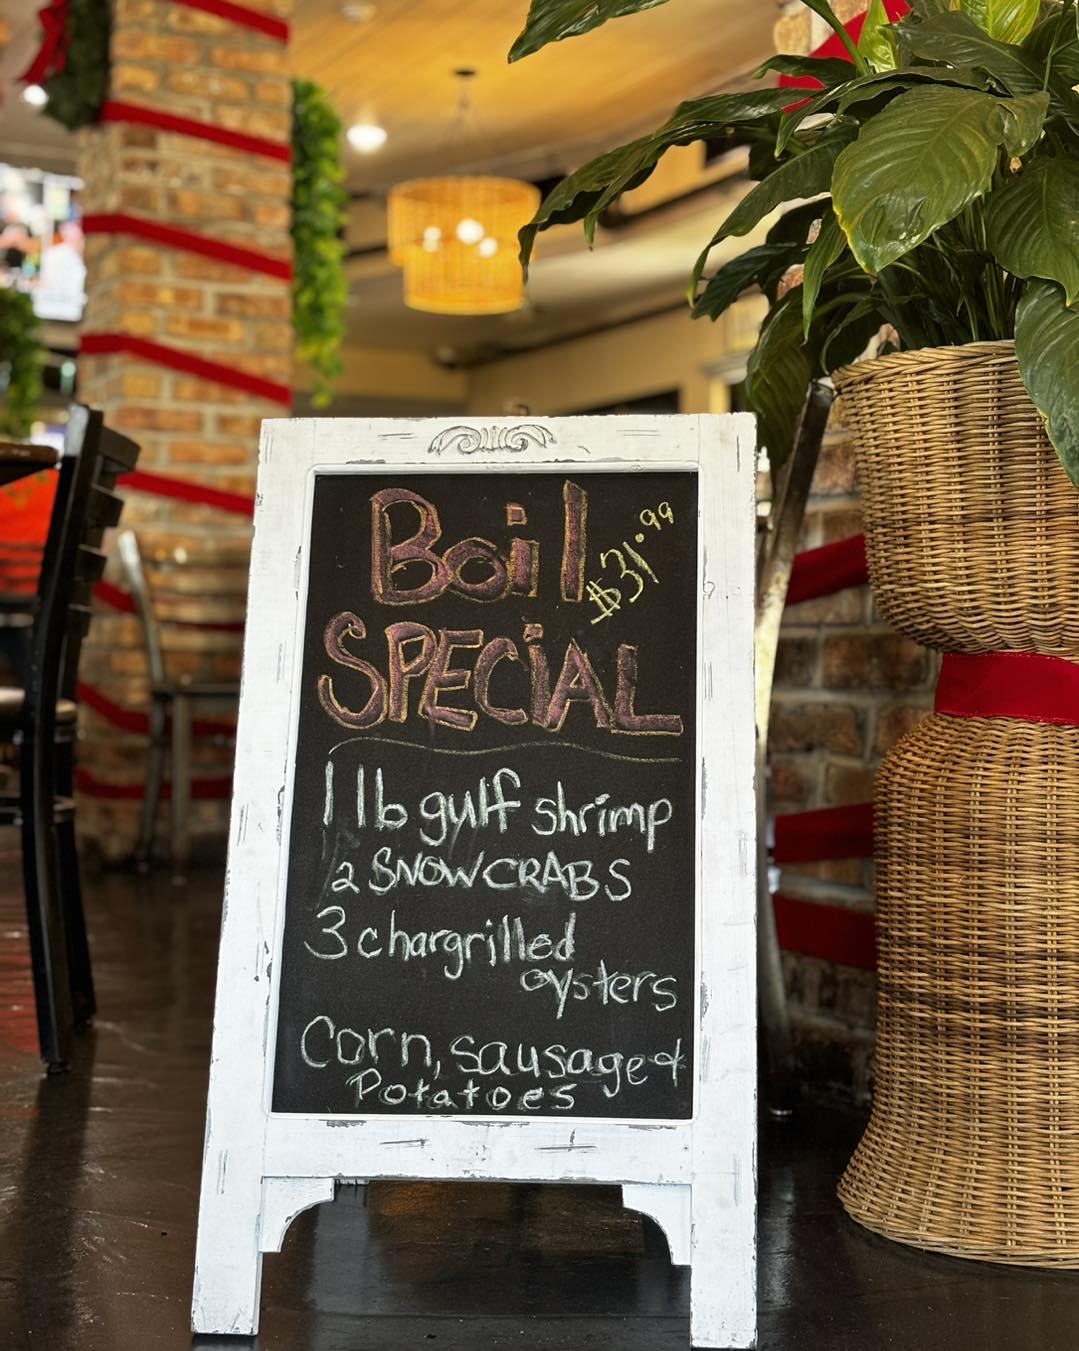 Boil
$31.99
SPECiAL
1 lb gulf shrimp
2 SNOWCRABS
3 chargrilled
oysters
Corn, sausage &
Potatoes